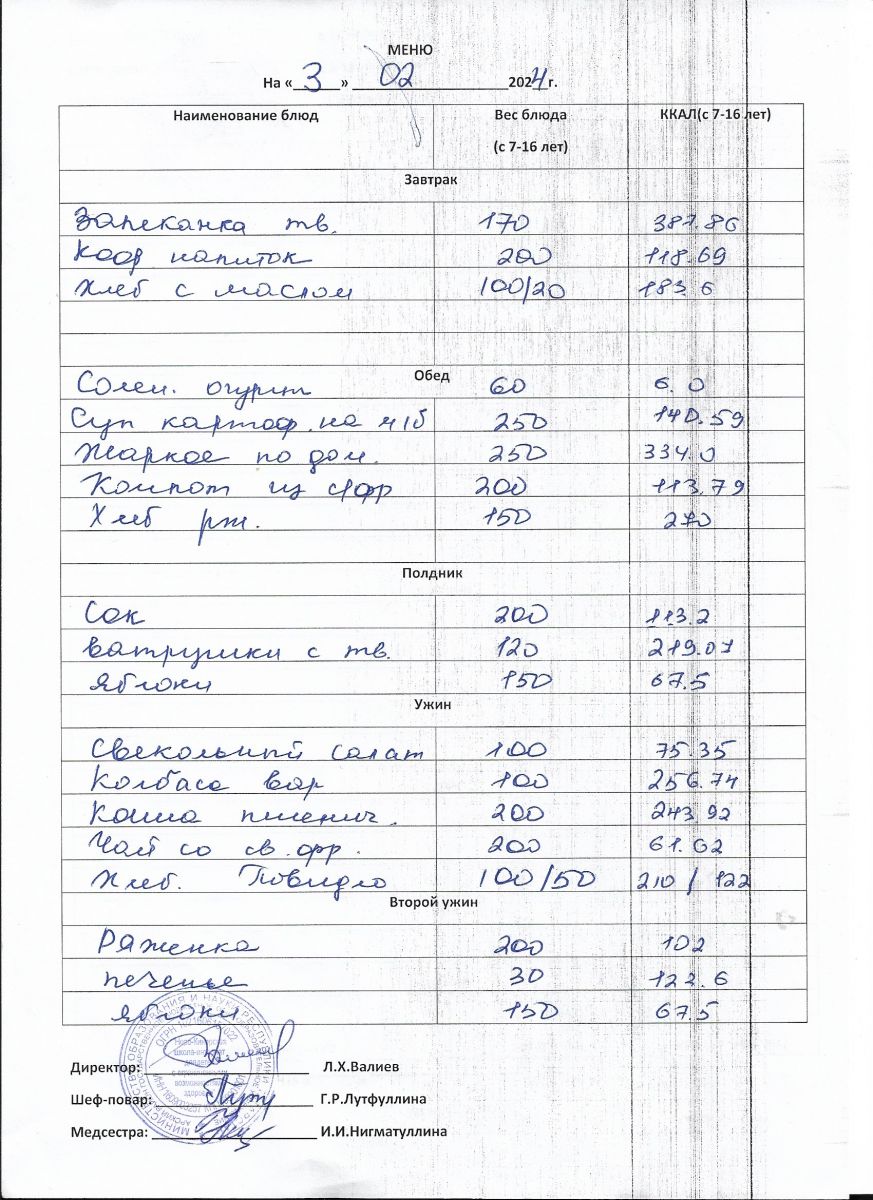 МЕНЮ
На «3» 02 2024г.
Наименование блюд Вес блюда (с 7-16 лет) ККАЛ(с 7-16 лет)
Завтрак
Запеканка тв. 170 387.86
Коф напиток 200 118.69
Хлеб с маслом 100/20 183.6
Обед
Солен. огурт 60 6.0
Суп картоф. на м/б 250 140.59
Жаркое по дом. 250 334.0
Компот из с/фр 200 113.79
Хлеб рж. 150 270
Полдник
Сок 200 113.2
Ватрушки с тв. 120 219.07
Яблоки 150 67.5
Ужин
Свекольный салат 100 75.35
Колбаса вар 100 256.74
Каша пшенич. 200 243.92
Чай со св. фр. 200 61.62
Хлеб. Повидло 100/50 210 / 122
Второй ужин
Ряженка 200 102
печенье 30 122.6
яблоки 150 67.5
Директор: Л.Х.Валиев
Шеф-повар: Г.Р.Лутфуллина
Медсестра: И.И.Нигматуллина